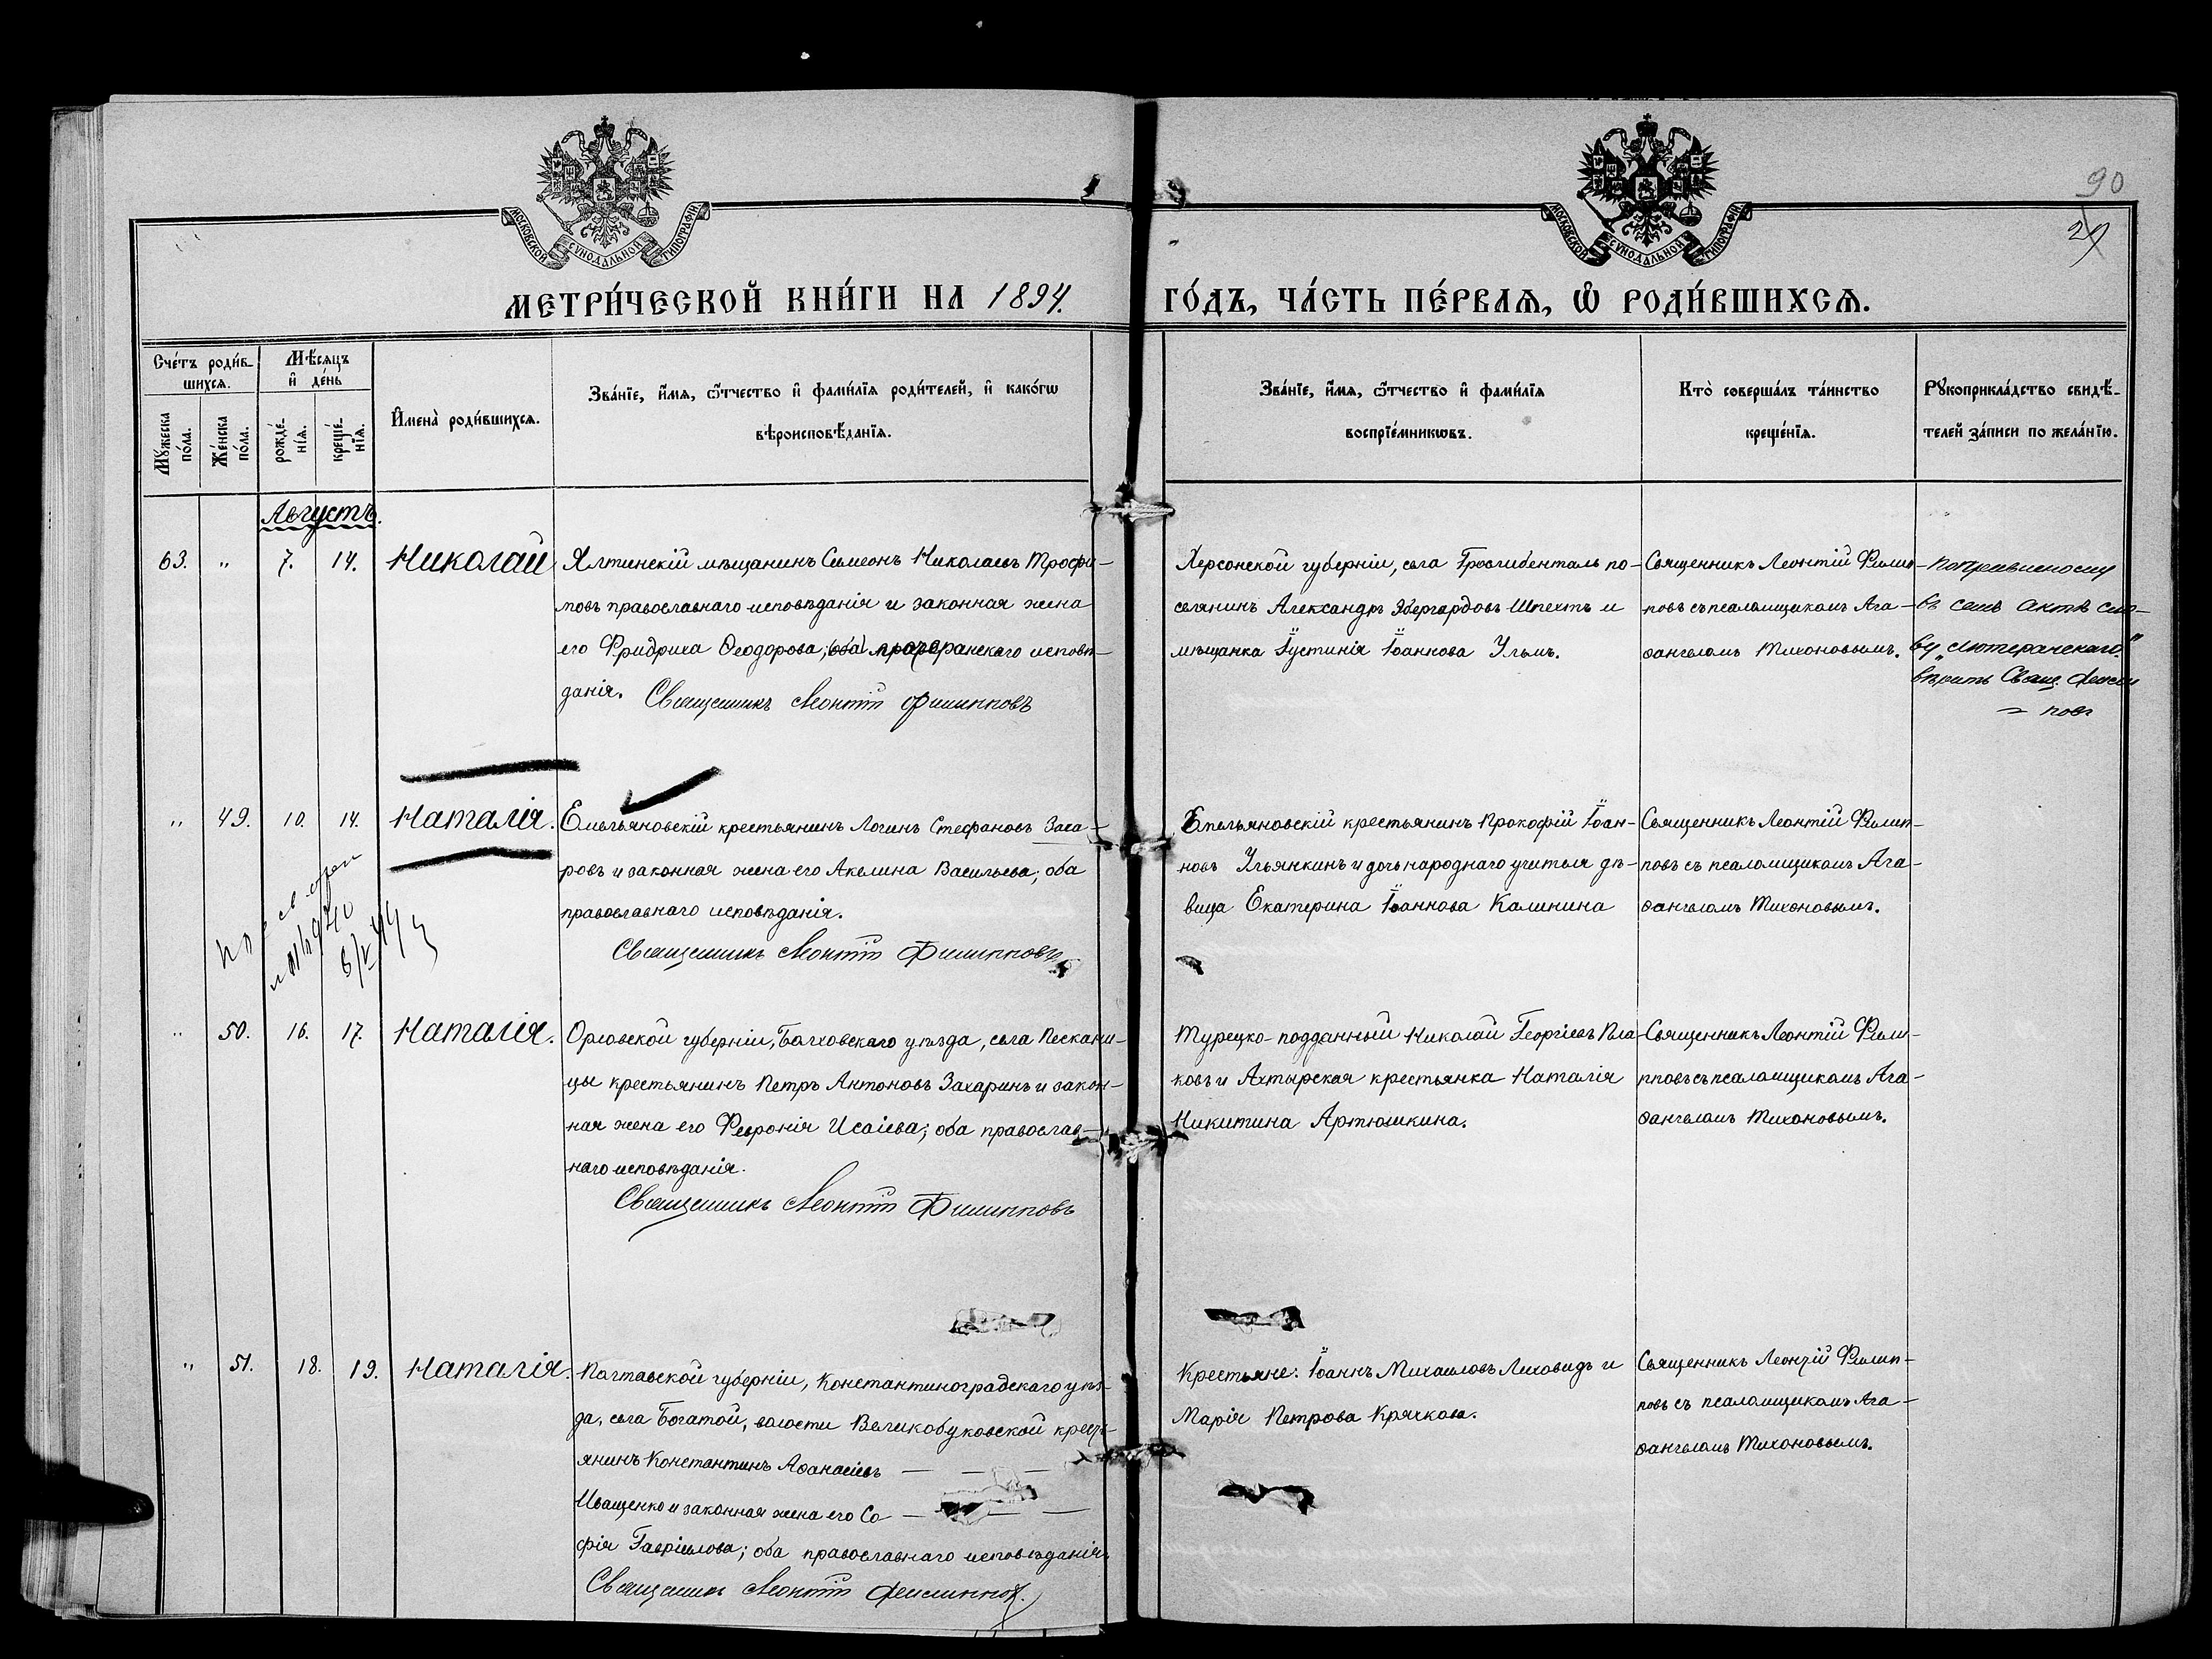 90
29
МОСКОВСКОЙ СѴНОДАЛЬНОЙ ТИПОГРАФІИ
МОСКОВСКОЙ СѴНОДАЛЬНОЙ ТИПОГРАФІИ
МЕТРИ́ЧЕСКОЙ КНИ́ГИ НА 1894. ГО́ДЪ, ЧА́СТЬ ПЕ́РВАѦ, Ѡ҆ РОДИ́ВШИХСѦ.
Сче́тъ роди́в-
шихсѧ.
Мꙋ́жеска
по́ла.
Же́нска
по́ла.
Мѣ́сѧцъ
и҆ де́нь
рожде́-
нїѧ.
креще́-
нїѧ.
И҆мена̀ роди́вшихсѧ.
Зва́нїе, и҆́мѧ, ѻ҆́тчество и҆ фами́лїѧ роди́телей, и҆ како́гѡ
вѣроисповѣ́данїѧ.
Зва́нїе, и҆́мѧ, ѻ҆́тчество и҆ фами́лїѧ
воспрїе́мникѡвъ.
Кто̀ соверша́лъ та́инство
креще́нїѧ.
Рꙋкоприкла́дство свидѣ́-
телей за́писи по жела́нїю.
Августъ.
63. „ 7. 14. Николай
Ялтинскій мѣщанинъ Симеонъ Николаевъ Трофи-
мовъ православнаго исповѣданія и законная жена
его Фридриха Ѳеодорова; оба лютеранскаго исповѣ-
данія.
Священникъ Леонтій Филипповъ
Херсонской губерніи, села Гросслибенталь по-
селянинъ Александръ Эбергардовъ Шпехтъ и
мѣщанка Іустинія Іоаннова Ульм.
Священникъ Леонтій Филип-
повъ съ псаломщикомъ Ага-
ѳангеломъ Тихоновымъ.
Поправленному
въ семъ актѣ сло-
ву „лютеранскаго"
вѣрить Свящ. Филип
повъ
„ 49. 10. 14. Наталія.
Емельяновскій крестьянинъ Логинъ Стефановъ Заха-
ровъ и законная жена его Акелина Васильева; оба
православнаго исповѣданія.
Священникъ Леонтій Филипповъ
Емельяновскій крестьянинъ Прокофій Іоан-
новъ Ульянкинъ и дочь народнаго учителя дѣ-
вица Екатерина Іоаннова Калинина
Священникъ Леонтій Филип-
повъ съ псаломщикомъ Ага-
ѳангеломъ Тихоновымъ.
„ 50. 16. 17. Наталія.
Орловской губерніи, Болховскаго уѣзда, села Пескани-
цы крестьянинъ Петръ Антоновъ Захаринъ и закон-
ная жена его Феврронія Исаіева; оба православ-
наго исповѣданія.
Священникъ Леонтій Филипповъ
Турецко-подданный Николай Георгіевъ Пла-
ковъ и Ахтырская крестьянка Наталія
Никитина Артюшкина.
Священникъ Леонтій Фили-
пповъ съ псаломщикомъ Ага-
ѳангеломъ Тихоновымъ.
„ 51. 18. 19. Наталія.
Полтавской губерніи, Константиноградскаго уѣз-
да, села Богатой, волости Великобуковской кресть-
янинъ Константинъ Аѳанасіевъ
Иващенко и законная жена его Со-
фія Гавріилова; оба православнаго исповѣданія.
Священникъ Леонтій Филиппов.
Крестьяне: Іоаннъ Михаиловъ Лиховидъ и
Марія Петрова Крячкова.
Священникъ Леонтій Филип-
повъ съ псаломщикомъ Ага-
ѳангеломъ Тихоновымъ.